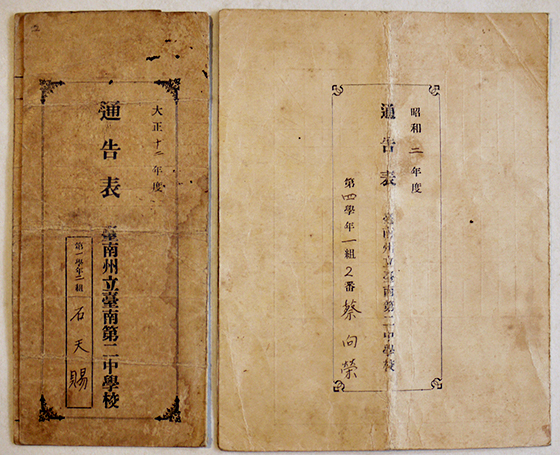 大正十二年度
通告表
臺南州立臺南第二中學校
第一學年二組 石天賜
昭和二年度
通告表
臺南州立臺南第二中學校
第四學年一組2番 蔡向榮